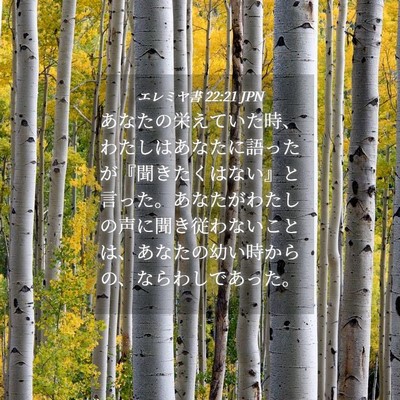 エレミヤ書 22:21 JPN
あなたの栄えていた時、
わたしはあなたに語った
が『聞きたくはない』と
言った。あなたがわたし
の声に聞き従わないこと
は、あなたの幼い時から
の、ならわしであった。